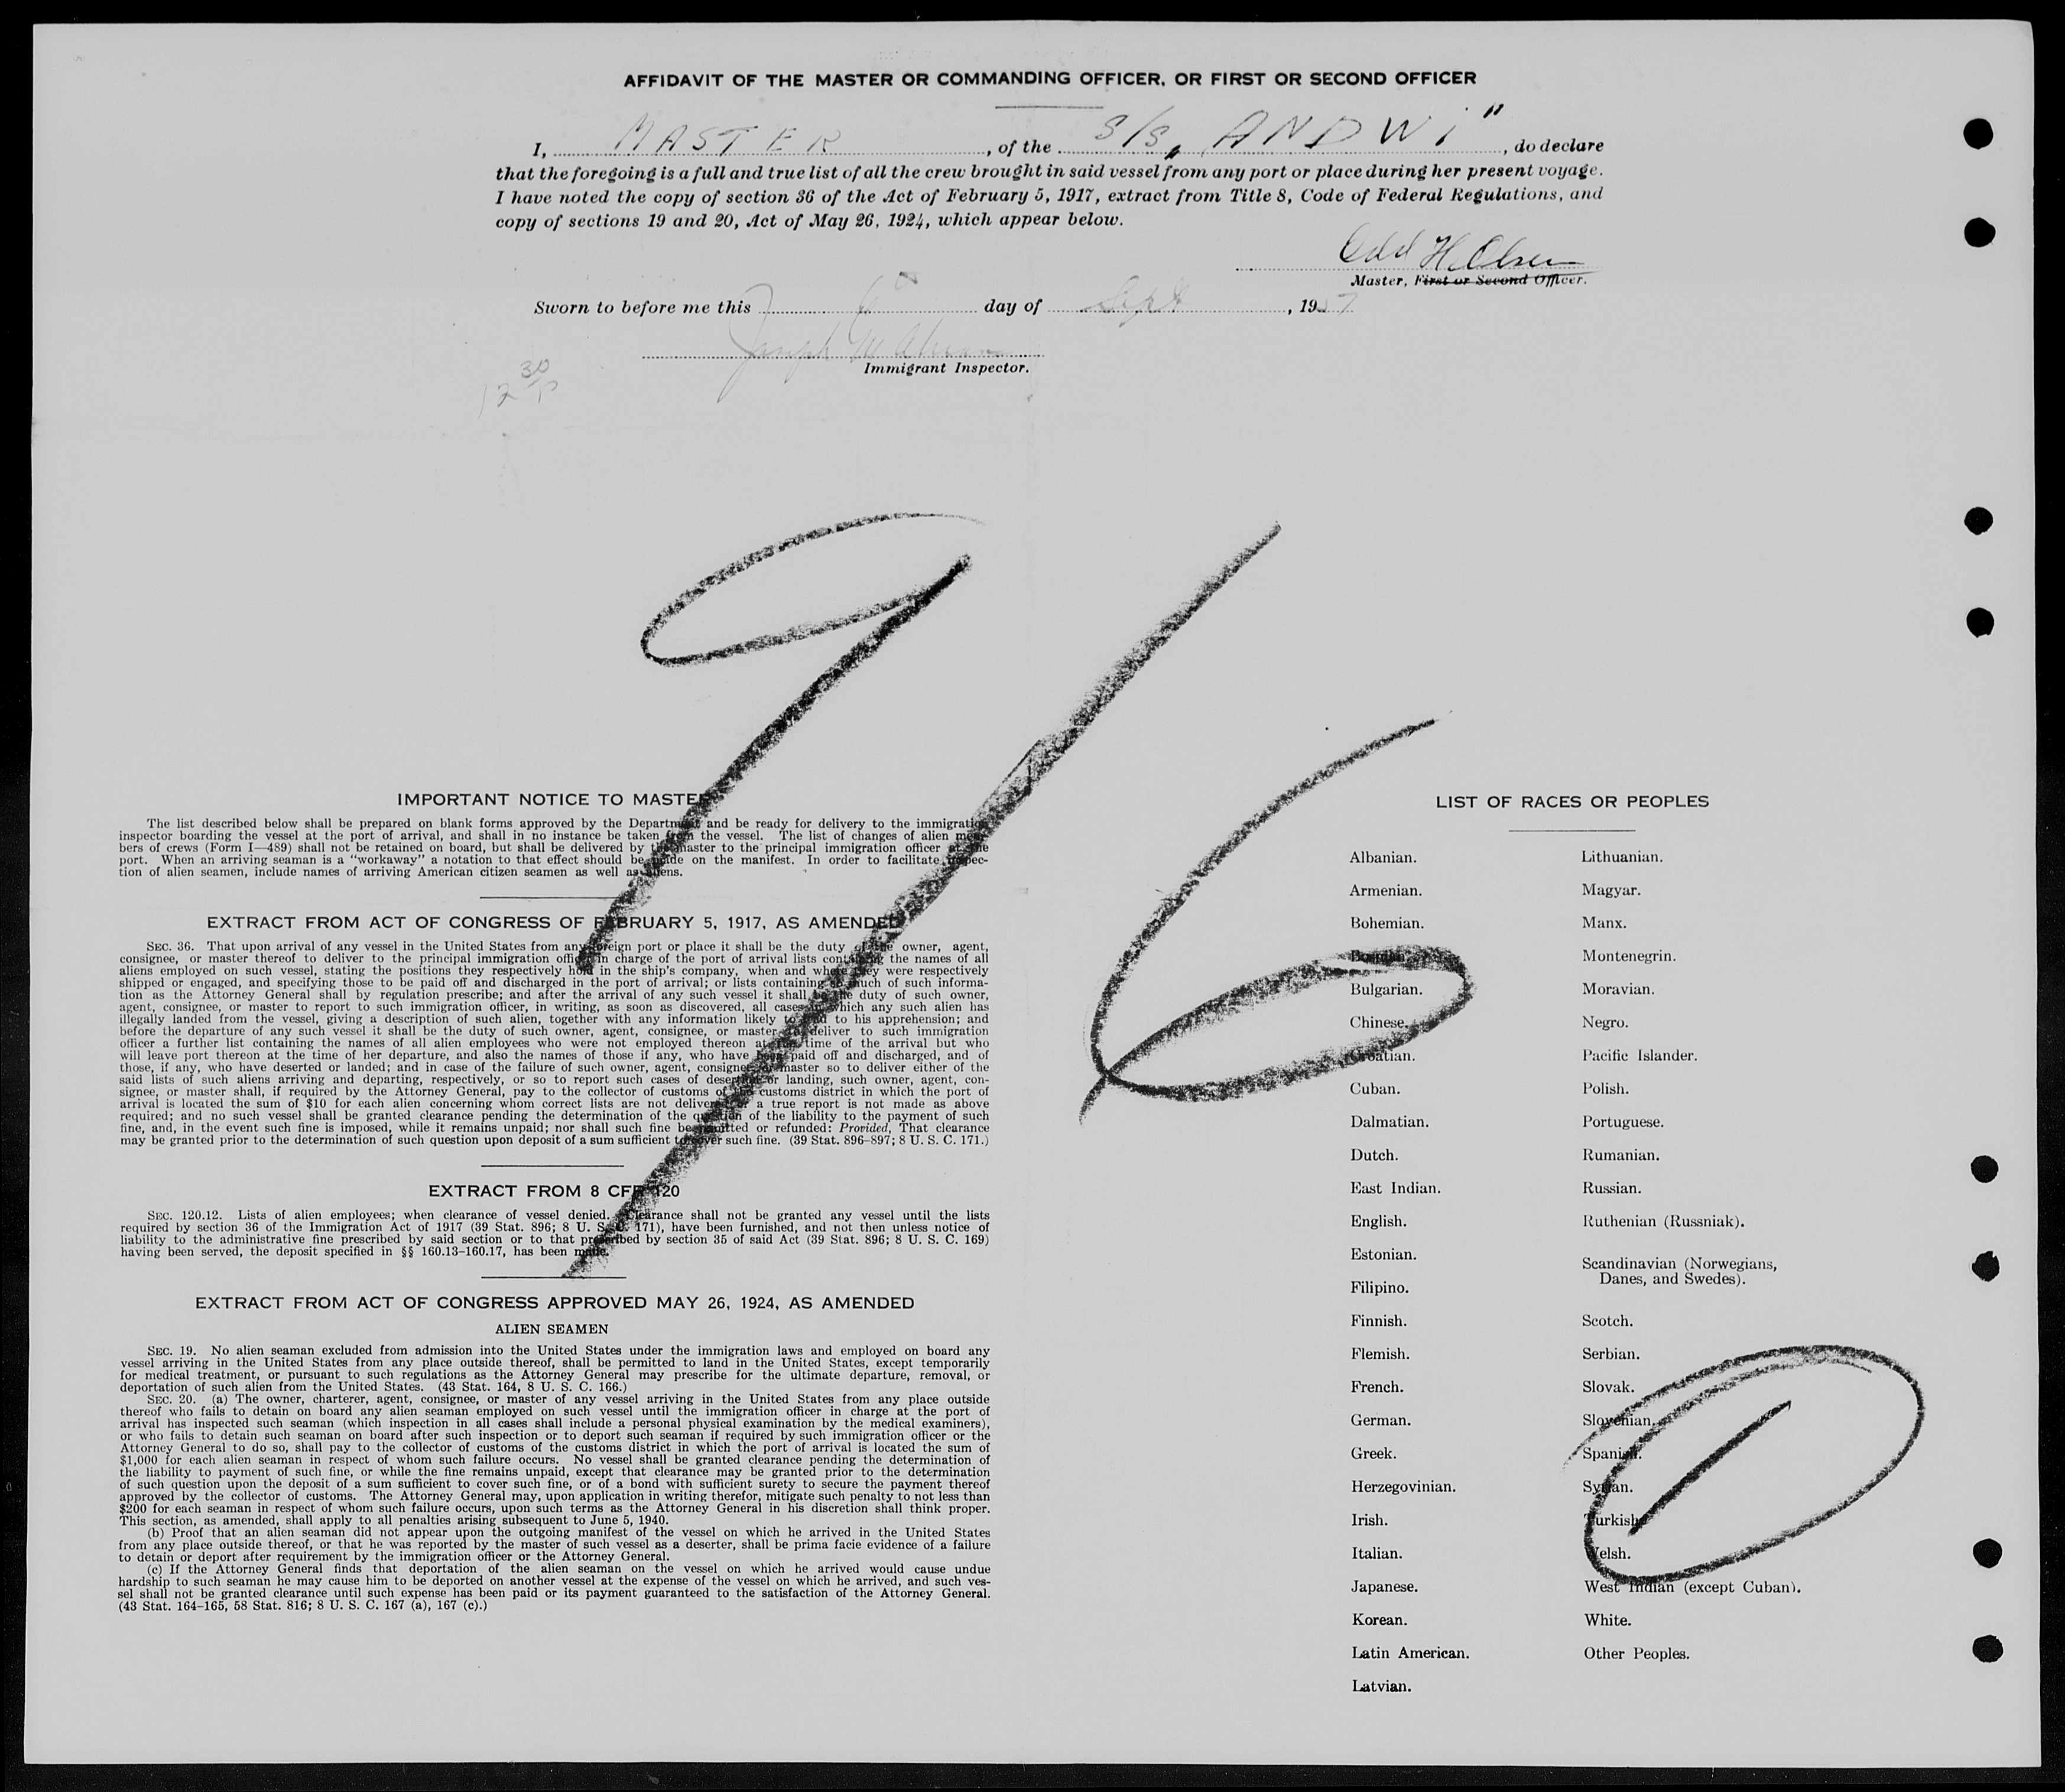 AFFIDAVIT OF THE MASTER OR COMMANDING OFFICER, OR FIRST OR SECOND OFFICER
I, MASTER, of the S/S „ANDWI", do declare
that the foregoing is a full and true list of all the crew brought in said vessel from any port or place during her present voyage.
I have noted the copy of section 36 of the Act of February 5, 1917, extract from Title 8, Code of Federal Regulations, and
copy of sections 19 and 20, Act of May 26, 1924, which appear below.
Odd H. Olsen
Master, First or Second Officer.
Sworn to before me this 6 day of Sept, 1957
Joseph
Immigrant Inspector.
12 30 P
9/6
IMPORTANT NOTICE TO MASTER
The list described below shall be prepared on blank forms approved by the Department and be ready for delivery to the immigration
inspector boarding the vessel at the port of arrival, and shall in no instance be taken from the vessel. The list of changes of alien mem-
bers of crews (Form I—489) shall not be retained on board, but shall be delivered by the master to the principal immigration officer at the
port. When an arriving seaman is a "workaway" a notation to that effect should be made on the manifest. In order to facilitate inspec-
tion of alien seamen, include names of arriving American citizen seamen as well as aliens.
EXTRACT FROM ACT OF CONGRESS OF FEBRUARY 5, 1917, AS AMENDED
SEC. 36. That upon arrival of any vessel in the United States from any foreign port or place it shall be the duty of the owner, agent,
consignee, or master thereof to deliver to the principal immigration officer in charge of the port of arrival lists containing the names of all
aliens employed on such vessel, stating the positions they respectively hold in the ship's company, when and where they were respectively
shipped or engaged, and specifying those to be paid off and discharged in the port of arrival; or lists containing so much of such informa-
tion as the Attorney General shall by regulation prescribe; and after the arrival of any such vessel it shall be the duty of such owner,
agent, consignee, or master to report to such immigration officer, in writing, as soon as discovered, all cases in which any such alien has
illegally landed from the vessel, giving a description of such alien, together with any information likely to lead to his apprehension; and
before the departure of any such vessel it shall be the duty of such owner, agent, consignee, or master to deliver to such immigration
officer a further list containing the names of all alien employees who were not employed thereon at the time of the arrival but who
will leave port thereon at the time of her departure, and also the names of those if any, who have been paid off and discharged, and of
those, if any, who have deserted or landed; and in case of the failure of such owner, agent, consignee, or master so to deliver either of the
said lists of such aliens arriving and departing, respectively, or so to report such cases of desertion or landing, such owner, agent, con-
signee, or master shall, if required by the Attorney General, pay to the collector of customs of the customs district in which the port of
arrival is located the sum of $10 for each alien concerning whom correct lists are not delivered or a true report is not made as above
required; and no such vessel shall be granted clearance pending the determination of the question of the liability to the payment of such
fine, and, in the event such fine is imposed, while it remains unpaid; nor shall such fine be remitted or refunded: Provided, That clearance
may be granted prior to the determination of such question upon deposit of a sum sufficient to cover such fine. (39 Stat. 896–897; 8 U. S. C. 171.)
EXTRACT FROM 8 CFR 120
SEC. 120.12. Lists of alien employees; when clearance of vessel denied. Clearance shall not be granted any vessel until the lists
required by section 36 of the Immigration Act of 1917 (39 Stat. 896; 8 U. S. C. 171), have been furnished, and not then unless notice of
liability to the administrative fine prescribed by said section or to that prescribed by section 35 of said Act (39 Stat. 896; 8 U. S. C. 169)
having been served, the deposit specified in §§ 160.13–160.17, has been made.
EXTRACT FROM ACT OF CONGRESS APPROVED MAY 26, 1924, AS AMENDED
ALIEN SEAMEN
SEC. 19. No alien seaman excluded from admission into the United States under the immigration laws and employed on board any
vessel arriving in the United States from any place outside thereof, shall be permitted to land in the United States, except temporarily
for medical treatment, or pursuant to such regulations as the Attorney General may prescribe for the ultimate departure, removal, or
deportation of such alien from the United States. (43 Stat. 164, 8 U. S. C. 166.)
SEC. 20. (a) The owner, charterer, agent, consignee, or master of any vessel arriving in the United States from any place outside
thereof who fails to detain on board any alien seaman employed on such vessel until the immigration officer in charge at the port of
arrival has inspected such seaman (which inspection in all cases shall include a personal physical examination by the medical examiners),
or who fails to detain such seaman on board after such inspection or to deport such seaman if required by such immigration officer or the
Attorney General to do so, shall pay to the collector of customs of the customs district in which the port of arrival is located the sum of
$1,000 for each alien seaman in respect of whom such failure occurs. No vessel shall be granted clearance pending the determination of
the liability to payment of such fine, or while the fine remains unpaid, except that clearance may be granted prior to the determination
of such question upon the deposit of a sum sufficient to cover such fine, or of a bond with sufficient surety to secure the payment thereof
approved by the collector of customs. The Attorney General may, upon application in writing therefor, mitigate such penalty to not less than
$200 for each seaman in respect of whom such failure occurs, upon such terms as the Attorney General in his discretion shall think proper.
This section, as amended, shall apply to all penalties arising subsequent to June 5, 1940.
(b) Proof that an alien seaman did not appear upon the outgoing manifest of the vessel on which he arrived in the United States
from any place outside thereof, or that he was reported by the master of such vessel as a deserter, shall be prima facie evidence of a failure
to detain or deport after requirement by the immigration officer or the Attorney General.
(c) If the Attorney General finds that deportation of the alien seaman on the vessel on which he arrived would cause undue
hardship to such seaman he may cause him to be deported on another vessel at the expense of the vessel on which he arrived, and such ves-
sel shall not be granted clearance until such expense has been paid or its payment guaranteed to the satisfaction of the Attorney General.
(43 Stat. 164–165, 58 Stat. 816; 8 U. S. C. 167 (a), 167 (c).)
LIST OF RACES OR PEOPLES
Albanian.
Armenian.
Bohemian.
Bosnian.
Bulgarian.
Chinese.
Croatian.
Cuban.
Dalmatian.
Dutch.
East Indian.
English.
Estonian.
Filipino.
Finnish.
Flemish.
French.
German.
Greek.
Herzegovinian.
Irish.
Italian.
Japanese.
Korean.
Latin American.
Latvian.
Lithuanian.
Magyar.
Manx.
Montenegrin.
Moravian.
Negro.
Pacific Islander.
Polish.
Portuguese.
Rumanian.
Russian.
Ruthenian (Russniak).
Scandinavian (Norwegians,
Danes, and Swedes).
Scotch.
Serbian.
Slovak.
Slovenian.
Spanish.
Syrian.
Turkish.
Welsh.
West Indian (except Cuban).
White.
Other Peoples.
1